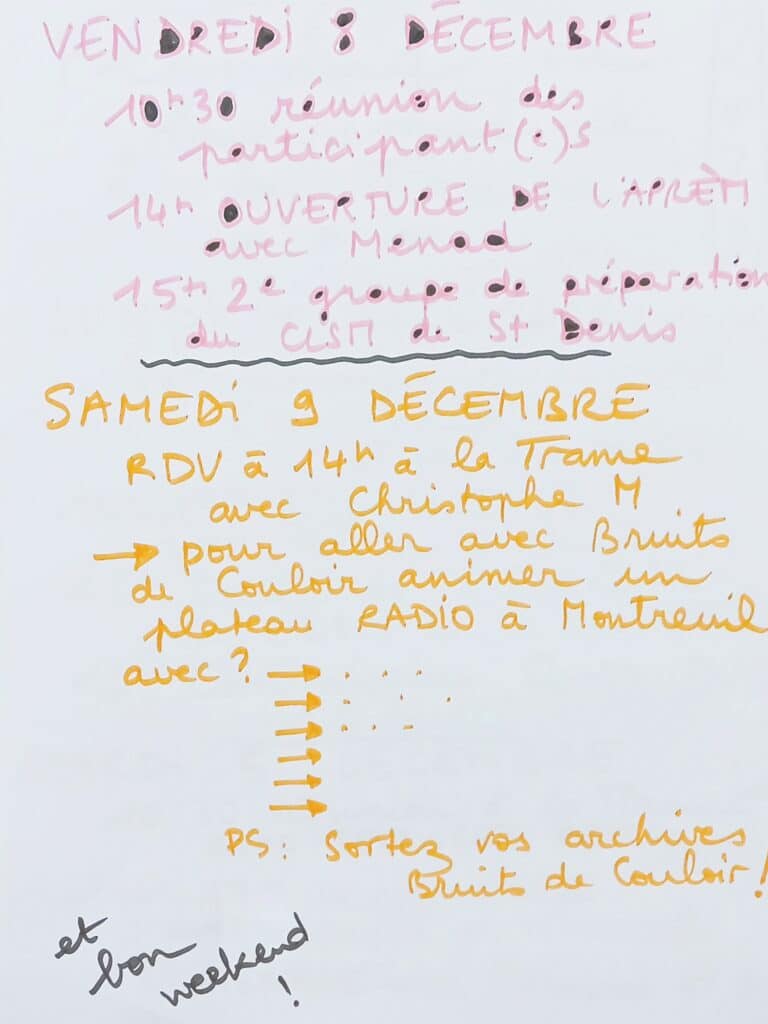 VENDREDI 8 DÉCEMBRE
10h30 réunion des
participant(e)s
14h OUVERTURE DE L'APRÈM
avec Menad
15h 2e groupe de préparation
du CLSM de St Denis
SAMEDI 9 DÉCEMBRE
RDV à 14h à la Trame
avec Christophe M
→ pour aller avec Bruits
de Couloir animer un
plateau RADIO à Montreuil
avec ? → . . .
→ . . .
→ . . .
→
→
→
PS : Sortez vos archives
Bruits de Couloir !
et
bon
weekend
!